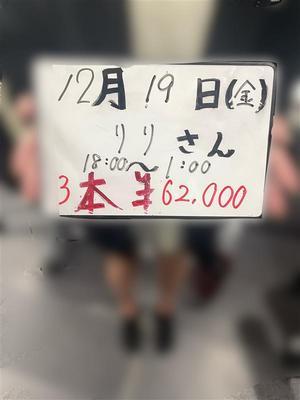 12月19日(金)
りりさん
18:00〜1:00
3本 ¥62.000